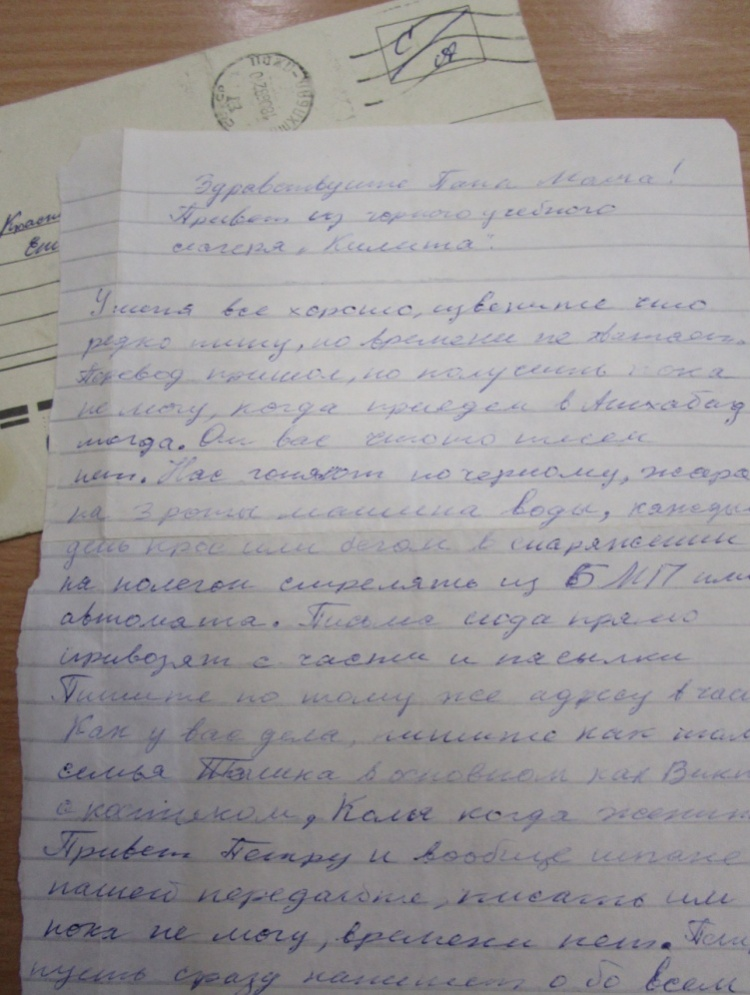 С
А
Здравствуйте Папа Мама!
Привет из горного учебного
лагеря „Килита".
У меня все хорошо, извените что
редко пишу, но времени не хватает.
Перевод пришол, но получить пока
не могу, когда приедем в Ашхабад
тогда. От вас чтото писем
нет. Нас гоняют по черному, жара
на 3 роты машина воды, кажды
день крос или бегом в снаряжении
на полегон стрелять из БМП или
автомата. Письма сюда прямо
привозят с части и посылки
Пишите по тому же адресу в час
Как у вас дела, пишите как там
семья в основном как Вик
с костиком, Коля когда женит
Привет Петру и вообще шпане
нашей передавайте, писать им
пока не могу, времени нет.
пусть сразу напишет обо всем